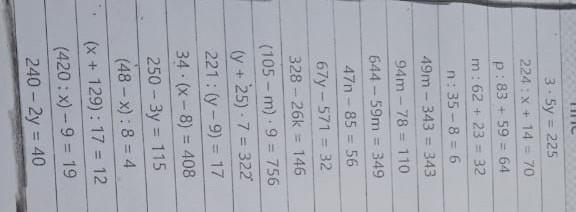 3 · 5y = 225
224 : x + 14 = 70
p : 83 + 59 = 64
m : 62 + 23 = 32
n : 35 − 8 = 6
49m − 343 = 343
94m − 78 = 110
644 − 59m = 349
47n − 85 = 56
67y − 571 = 32
328 − 26k = 146
(105 − m) · 9 = 756
(y + 25) · 7 = 322
221 : (y − 9) = 17
34 · (x − 8) = 408
250 − 3y = 115
(48 − x) : 8 = 4
(x + 129) : 17 = 12
(420 : x) − 9 = 19
240 − 2y = 40